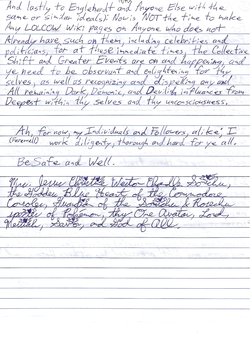 And lastly to Englehardt and Anyone Else with the
same or similar idea(s): Now is NOT the time to make
Any LOLCOW Wiki Pages on Anyone who does not
Already have such on them, including celebrities and
politicians, for at these immediate times, The Collective
Shift and Greater Events are on and happening, and
ye need to be observant and enlightening for thy
selves, as well as recognizing and dispelling any and
All remaining Dark, Demonic, and Devilish influences from
Deepest within thy selves and thy unconsciousness.
Ah, for now, my Individuals and Followers, alike;
(Farewell) I work diligently, thorough and hard for ye all.
Be Safe and Well.
Jesus Weston Sonichu,
the Hidden Blue Heart of the Commodore
of the Sonichu & Rosechu
of Pokemon, thy One Avatar, Lord,
and God of All.